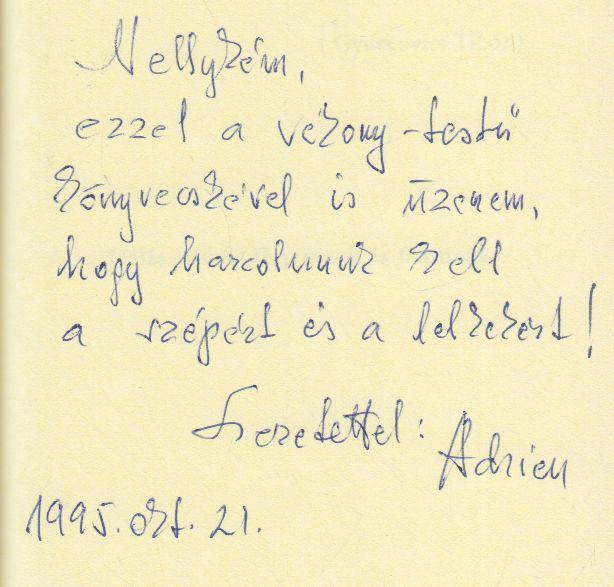 Nellykém,
ezzel a vékony-testű
könyvecskével is üzenem,
hogy harcolnunk kell
a szépért és a lelkekért!
Szeretettel:
Adrien
1995. okt. 21.